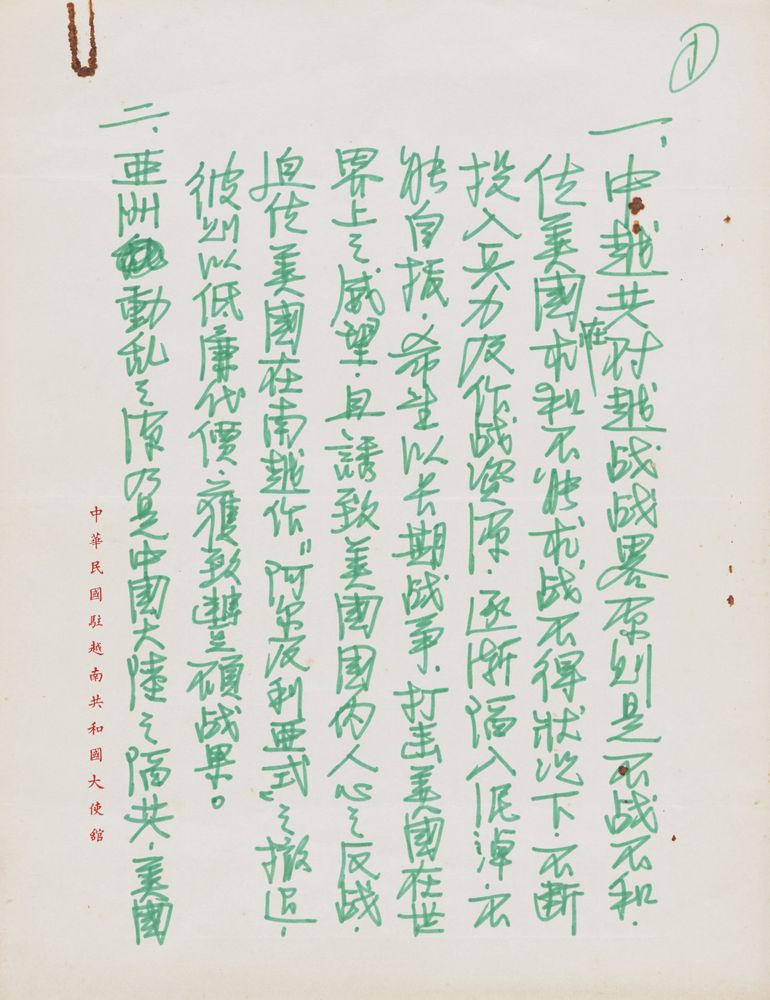 ①
一、中越共对越战战畧原则是不战不和.
使美國在求和不能求战不得狀况下.不断
投入兵力及作战資源.逐渐陷入泥淖.不
能自拔.希望以长期战争.打击美國在世
界上之威望.且誘致美國國内人心之反战.
迫使美國在南越作"阿尔及利亚式"之撤退.
彼则以低廉代價.獲致豐碩战果。
二、亚洲動乱之源乃是中國大陸之陷共.美國
中華民國駐越南共和國大使館